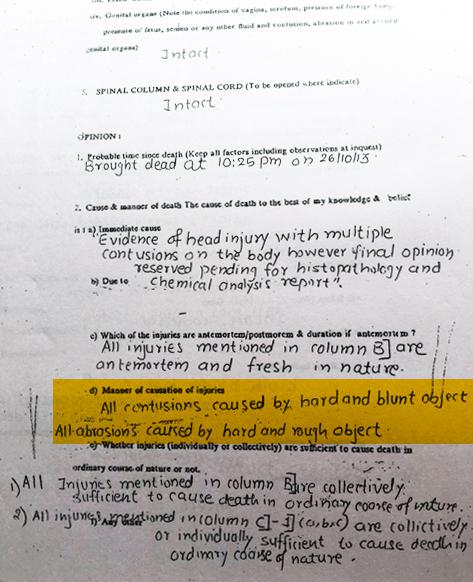 xiv. Genital organs (Note the condition of vagina, scrotum, presence of foreign body,
presence of fetus, semen or any other fluid and contusion, abrasion in and around
genital organs)
Intact
5. SPINAL COLUMN & SPINAL CORD (To be opened where indicate)
Intact
OPINION :
1. Probable time since death (Keep all factors including observations at inquest)
Brought dead at 10:25 pm on 26/10/13.
2. Cause & manner of death The cause of death to the best of my knowledge & belief
is : a) Immediate cause
"Evidence of head injury with multiple
contusions on the body however final opinion
reserved pending for histopathology and
b) Due to chemical analysis report".
-
c) Which of the injuries are antemortem/postmorem & duration if antemortem ?
All injuries mentioned in column B] are
antemortem and fresh in nature.
d) Manner of causation of injuries
All contusions caused by hard and blunt object
All abrasions caused by hard and rough object.
e) Whether injuries (individually or collectively) are sufficient to cause death in
ordinary course of nature or not.
1) All Injuries mentioned in column B] are collectively
sufficient to cause death in ordinary coorse of nature.
2) All injuries mentioned in column C]-1] (a,b,c) are collictively
or individually sufficient to cause death in
ordinary coorse of nature.